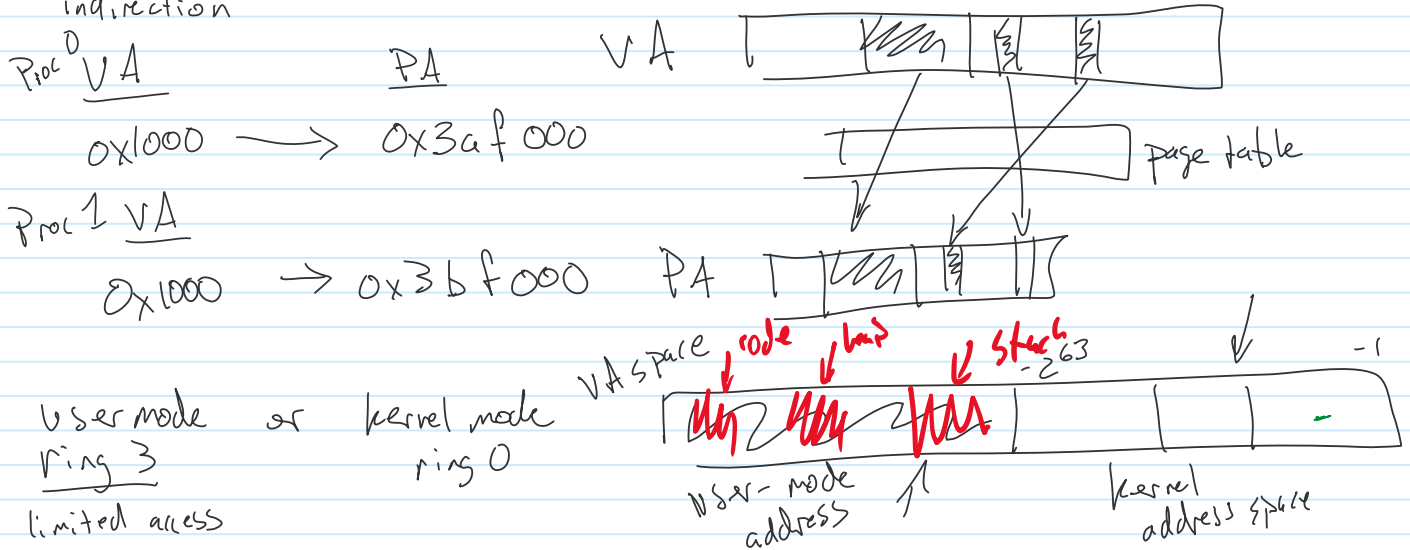 indirection
Proc 0 VA PA
0x1000 → 0x3af000
Proc 1 VA
0x1000 → 0x3bf000
user mode or kernel mode
ring 3 ring 0
limited access
VA
page table
PA
VA space
code heap stack
-2^63 -1
user-mode
address
kernel
address space